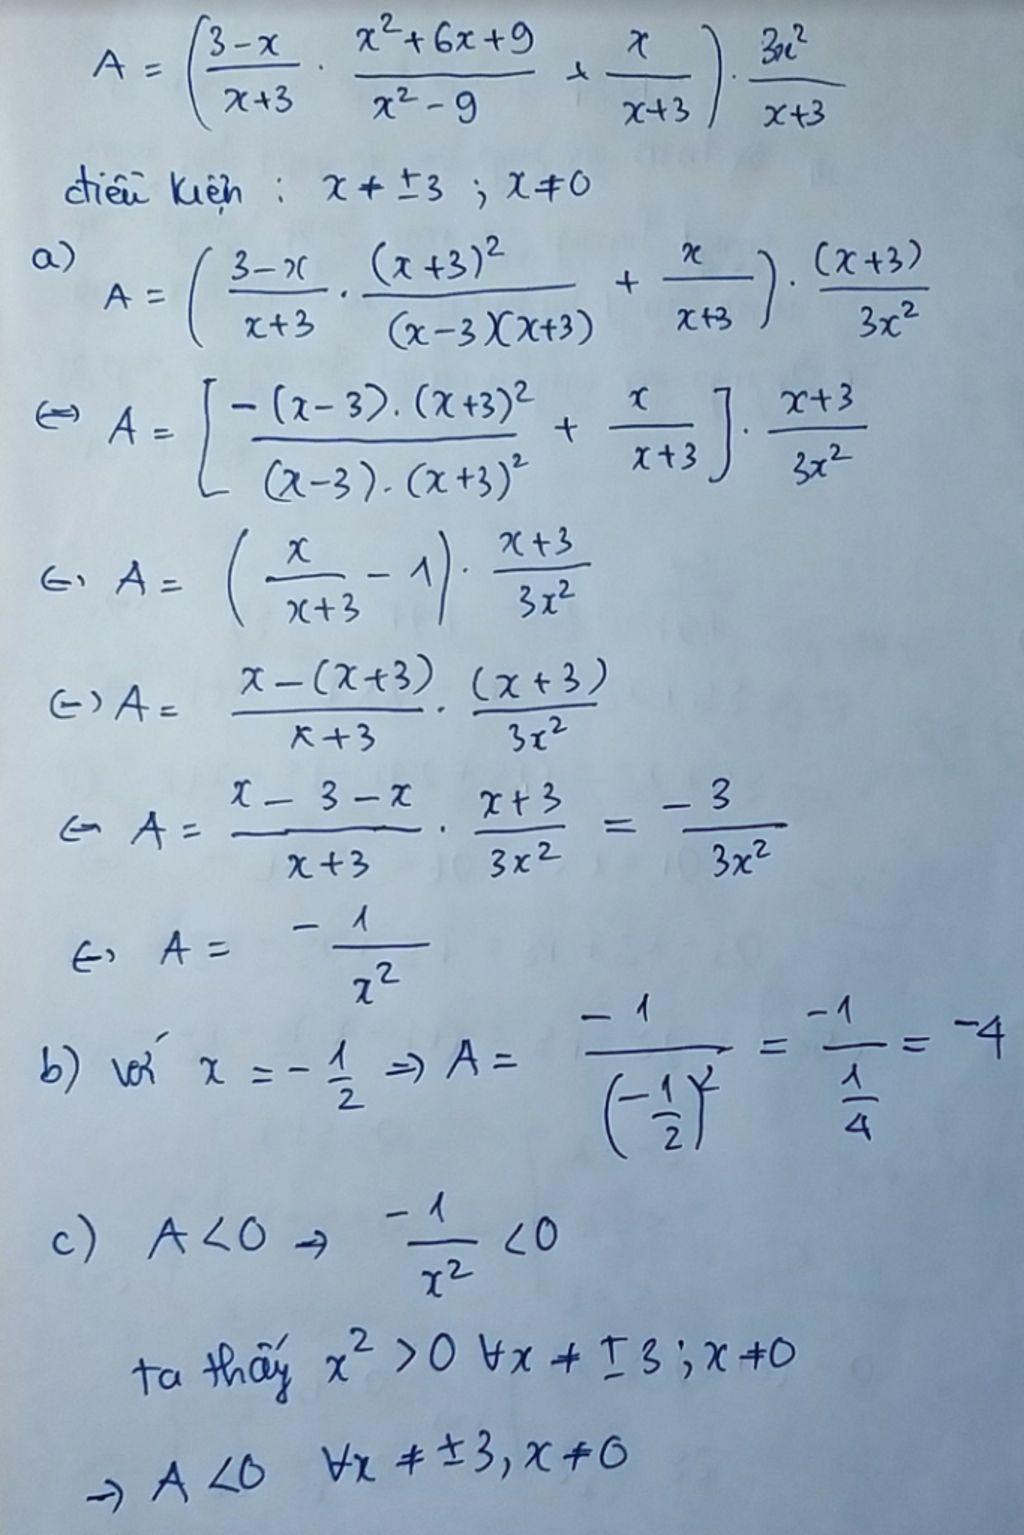 A = ( (3-x)/(x+3) . (x²+6x+9)/(x²-9) + x/(x+3) ) . 3x²/(x+3)
điều kiện : x ≠ ±3 ; x≠0
a) A = ( (3-x)/(x+3) . (x+3)²/((x-3)(x+3)) + x/(x+3) ) . (x+3)/3x²
⇔ A = [ (-(x-3).(x+3)²)/((x-3).(x+3)²) + x/(x+3) ] . (x+3)/3x²
⇔ A = ( x/(x+3) - 1 ) . (x+3)/3x²
⇔ A = (x-(x+3))/(x+3) . (x+3)/3x²
⇔ A = (x-3-x)/(x+3) . (x+3)/3x² = -3/3x²
⇔ A = -1/x²
b) với x = -1/2 ⇒ A = -1/(-1/2)² = -1/(1/4) = -4
c) A<0 → -1/x² <0
ta thấy x² >0 ∀x ≠ ±3 ; x≠0
→ A <0 ∀x ≠ ±3, x≠0